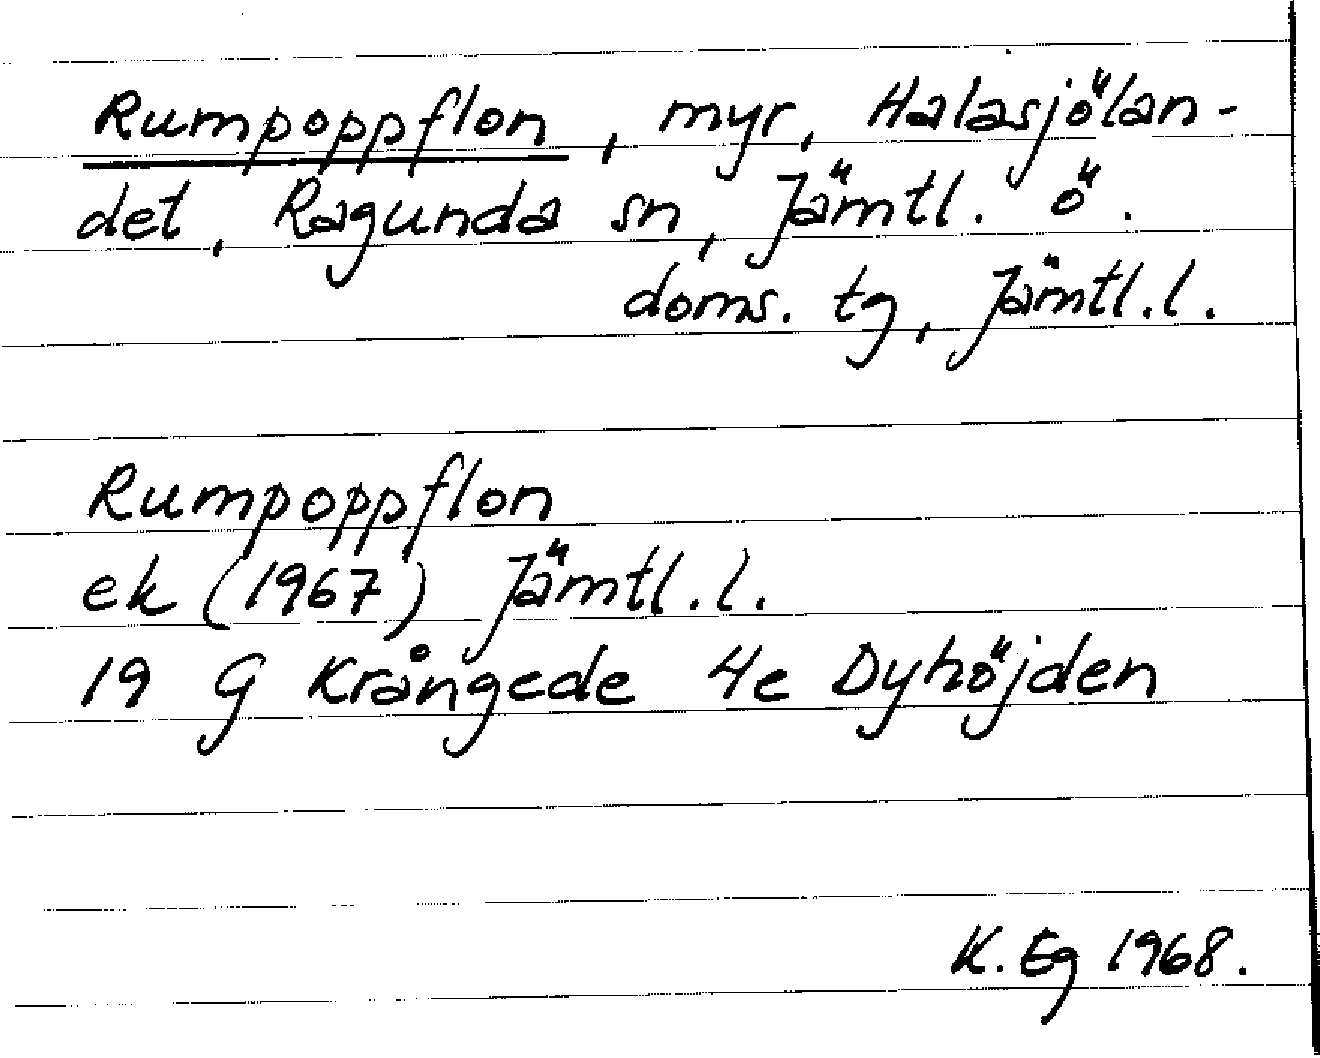 Rumpoppflon, myr, Halasjölan-
det, Ragunda sn, Jämtl. ö.
doms. tg, Jämtl.l.
Rumpoppflon
ek (1967) Jämtl.l.
19 G Krångede 4e Dyhöjden
K. Eg 1968.